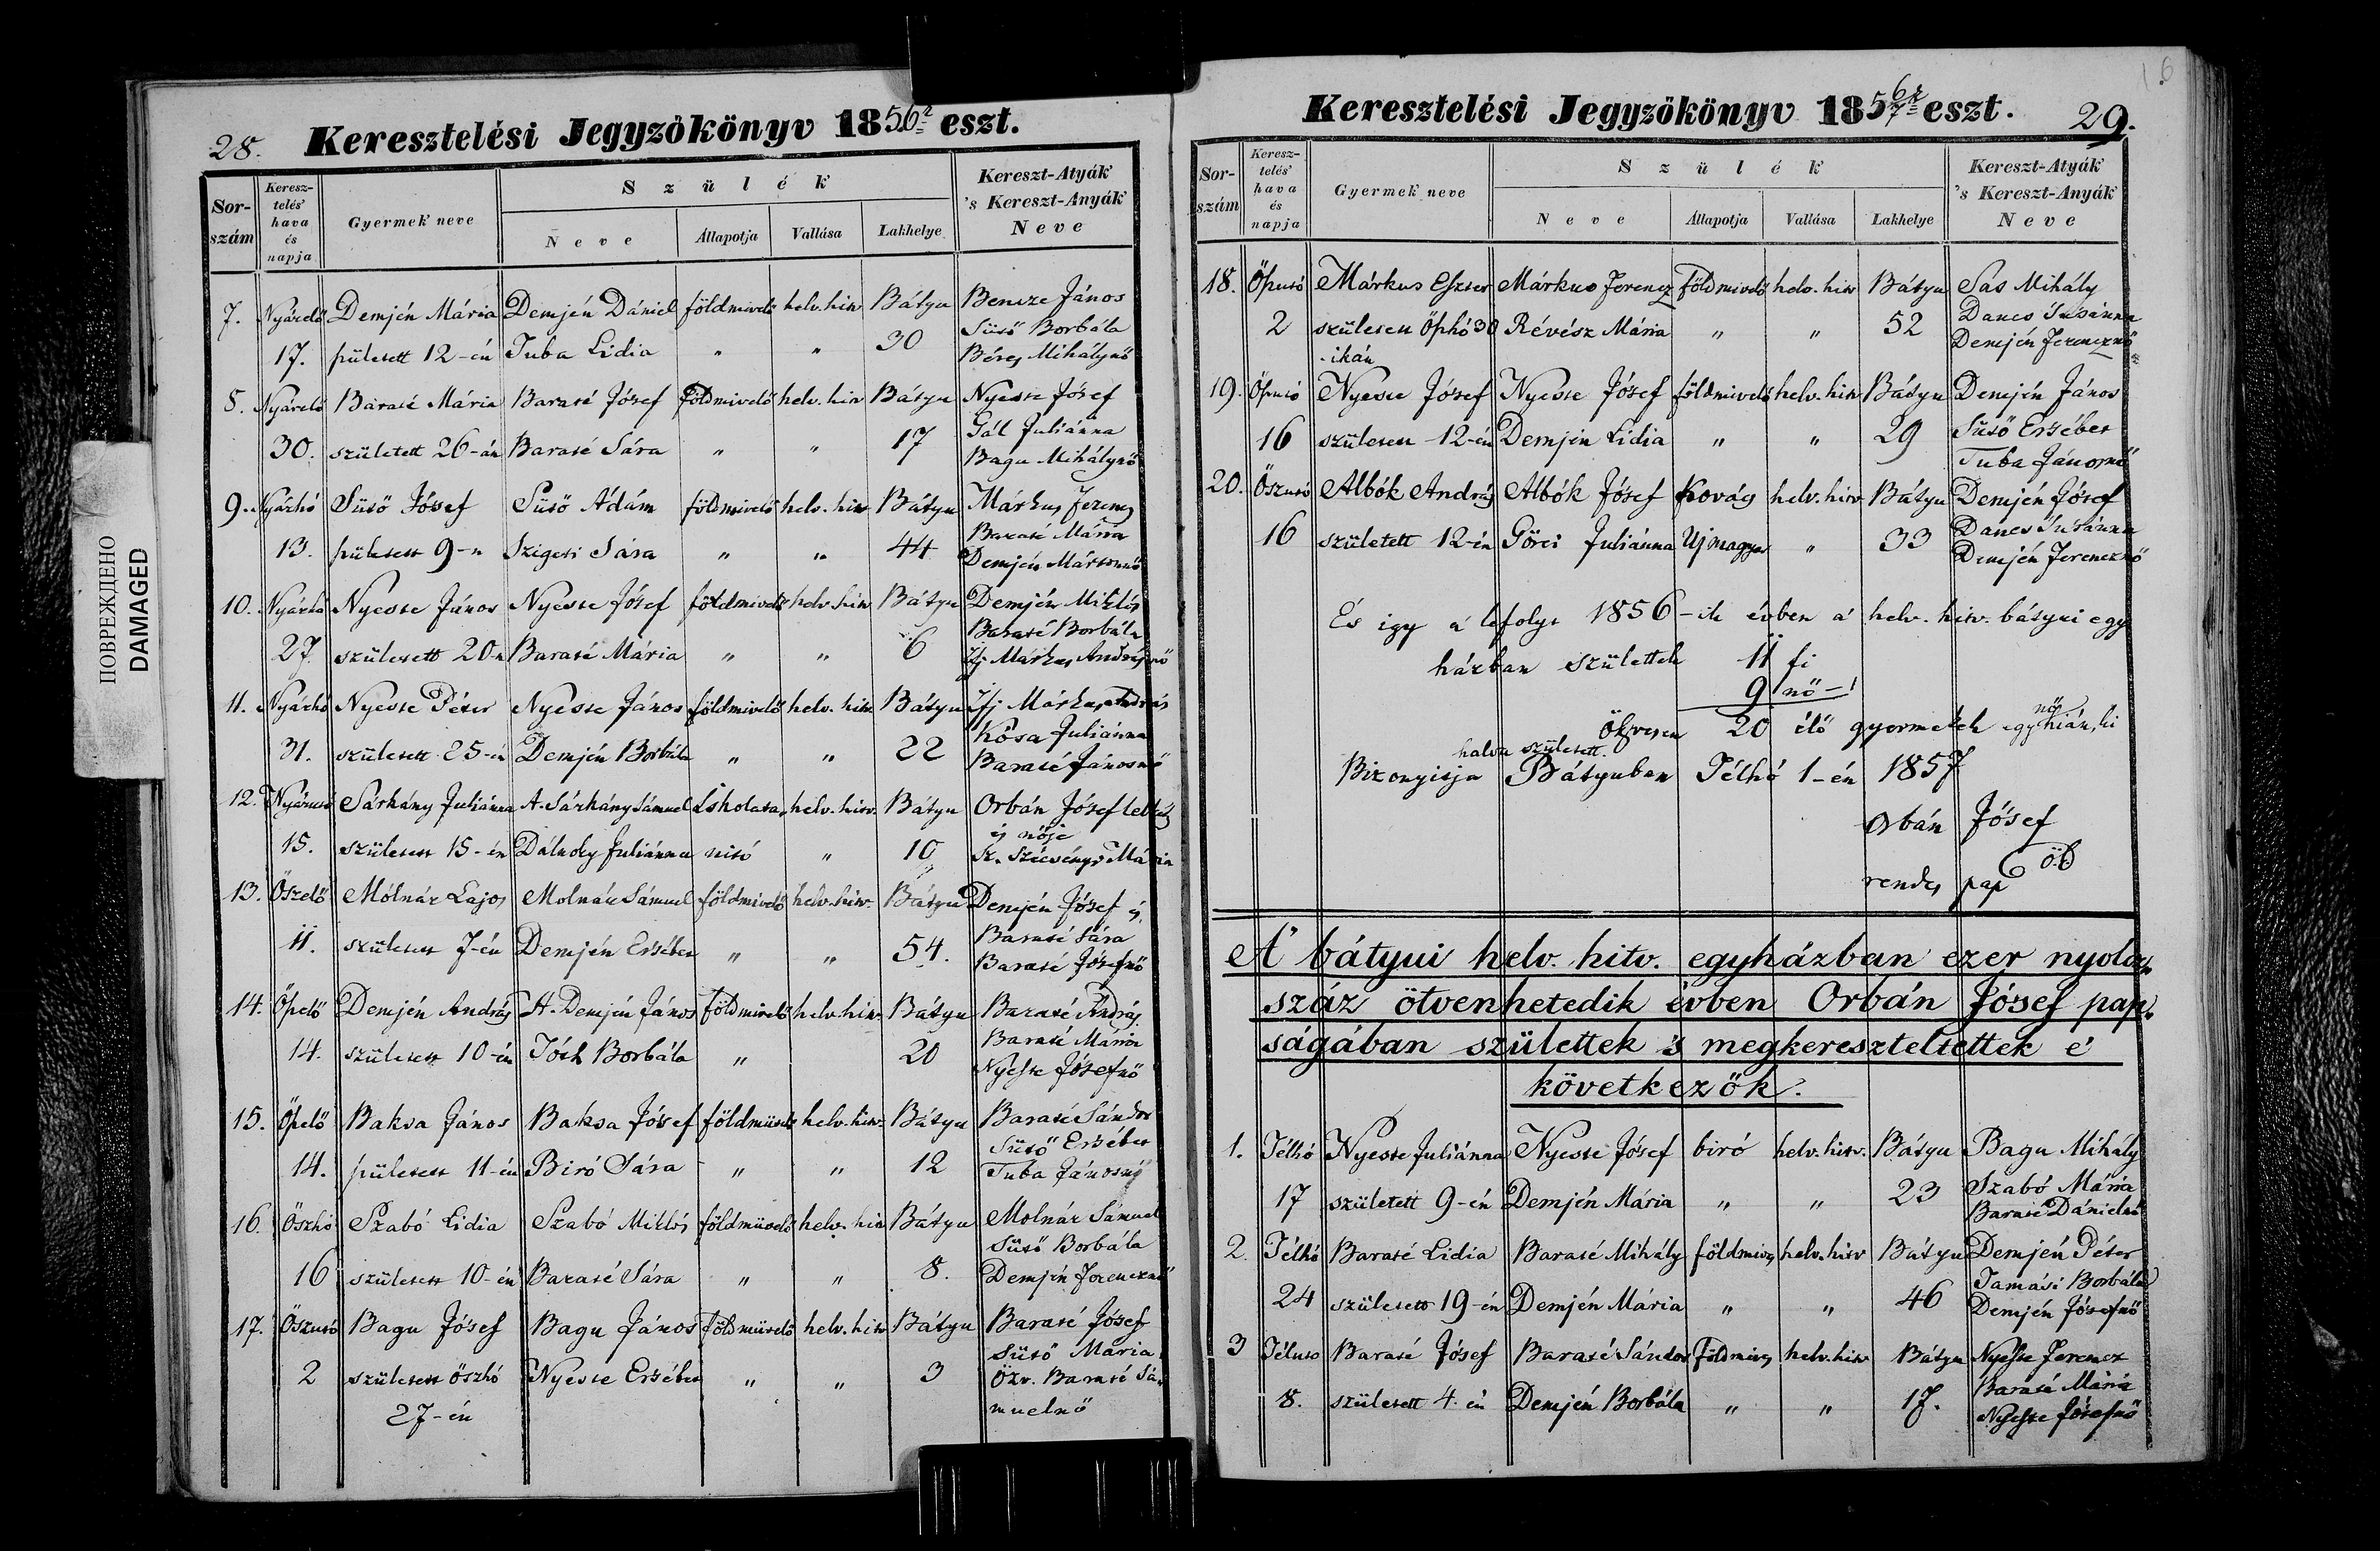 28. Keresztelési Jegyzőkönyv 1856r eszt.
Sor-szám Keresz-telés' hava és napja Gyermek neve Szülék Neve Állapotja Vallása Lakhelye Kereszt-Atyák 's Kereszt-Anyák Neve
7. Nyárelő Demjén Mária Demjén Dániel földmivelő helv. hitv Bátyu Bencze János
Süső Borbála
17. született 12-én Tuba Lidia " " 30 Béres Mihálynő
8. Nyárelő Baraté Mária Baraté Jósef földmivelő helv. hitv Bátyu Nyeste Jósef
Gál Juliánna
30. született 26-án Baraté Sára " " 17 Bagu Mihálynő
9. Nyárhó Süső Jósef Süső Ádám földmivelő helv. hitv Bátyu Márkus Ferencz
Baraté Mária
13. született 9-n Szigeti Sára " " 44 Demjén Mártonnő
10. Nyárhó Nyeste János Nyeste Jósef földmivelő helv. hitv Bátyu Demjén Miklós
Baraté Borbála
27. született 20-n Baraté Mária " " 6 Ifj Márkus Andrásnő
11. Nyárhó Nyeste Péter Nyeste János földmivelő helv. hitv Bátyu Ifj Márkus András
Kósa Juliánna
31. született 25-én Demjén Borbála " " 22 Baraté Jánosnő
12. Nyárutó Sárkány Juliánna A. Sárkány Sámuel Iskolata, helv. hitv. Bátyu Orbán Jósef lelkész
és nője
15. született 15-én Dálnoky Juliánna nitó " 10 Sz. Szécsényi Mária
13. Őszelő Mólnár Lajos Molnár Sámuel földmivelő helv. hitv. Bátyu Demjén Jósef és
Baraté Sára
11. született 7-én Demjén Ersébet " " 54. Baraté Jósefnő
14. Őszelő Demjén András A. Demjén János földmivelő helv. hitv. Bátyu Baraté András
Baraté Mária
14. született 10-én Tóth Borbála " 20 Nyeste Jósefnő
15. Őszelő Baksa János Baksa Jósef földmüvelő helv. hitv. Bátyu Baraté Sándor
Süső Ersébet
14. született 11-én Biró Sára " " 12 Tuba Jánosnő
16. Őszhó Szabó Lidia Szabó Miklós földmüvelő helv. hitv Bátyu Molnár Sámuel
Süső Borbála
16 született 10-én Baraté Sára " " 8. Demjén Ferencznő
17. Őszutó Bagu Jósef Bagu János földmüvelő helv. hitv Bátyu Baraté Jósef
Süső Mária
2 született őszhó Nyeste Ersébet " " 3 Özv. Baraté Sá-
27-én muelnő
ПОВРЕЖДЕНО
DAMAGED
Keresztelési Jegyzőkönyv 1856/7r eszt. 29.
16
Sor-szám Keresz-telés' hava és napja Gyermek neve Szülék Neve Állapotja Vallása Lakhelye Kereszt-Atyák 's Kereszt-Anyák Neve
18. Őszutó Márkus Eszter Márkus Ferencz földmivelő helv. hitv Bátyu Sas Mihály
Dancs Susánna
2 született Őszhó 30 Révész Mária " " 52 Demjén Ferencznő
-ikán
19. Őszutó Nyeste Jósef Nyeste Jósef földmivelő helv. hitv Bátyu Demjén János
Süső Ersébet
16 született 12-én Demjén Lidia " " 29 Tuba Jánosnő
20. Őszutó Albók András Albók Jósef Kovács helv. hitv. Bátyu Demjén Jósef
Dancs Susánna
16 született 12-én Görci Juliánna Uj magyar " 33 Demjén Ferencznő
És igy a lefolyt 1856-ik évben a helv. hitv. bátyui egy
házban születtek 11 fi
9 nő
Öszvesen 20 élő gyermekek egy nő hián, ki
halva született.
Bizonyitja Bátyuban Télhó 1-én 1857
Orbán Jósef
rendes pap
A' bátyui helv. hitv. egyházban ezer nyolcz
száz ötvenhetedik évben Orbán Jósef pap-
ságában születtek 's megkereszteltettek e'
következők.
1. Télhó Nyeste Juliánna Nyeste Jósef biró helv. hitv. Bátyu Bagu Mihály
Szabó Mária
17 született 9-én Demjén Mária " " 23 Baraté Dánielnő
2. Télhó Baraté Lidia Baraté Mihály földmives helv. hitv Bátyu Demjén Péter
Tamási Borbála
24 született 19-én Demjén Mária " " 46 Demjén Jósefnő
3 Télutó Baraté Jósef Baraté Sándor Földmives helv. hitv Bátyu Nyeste Ferencz
Baraté Mária
8. született 4-én Demjén Borbála " " 17. Nyeste Jósefnő